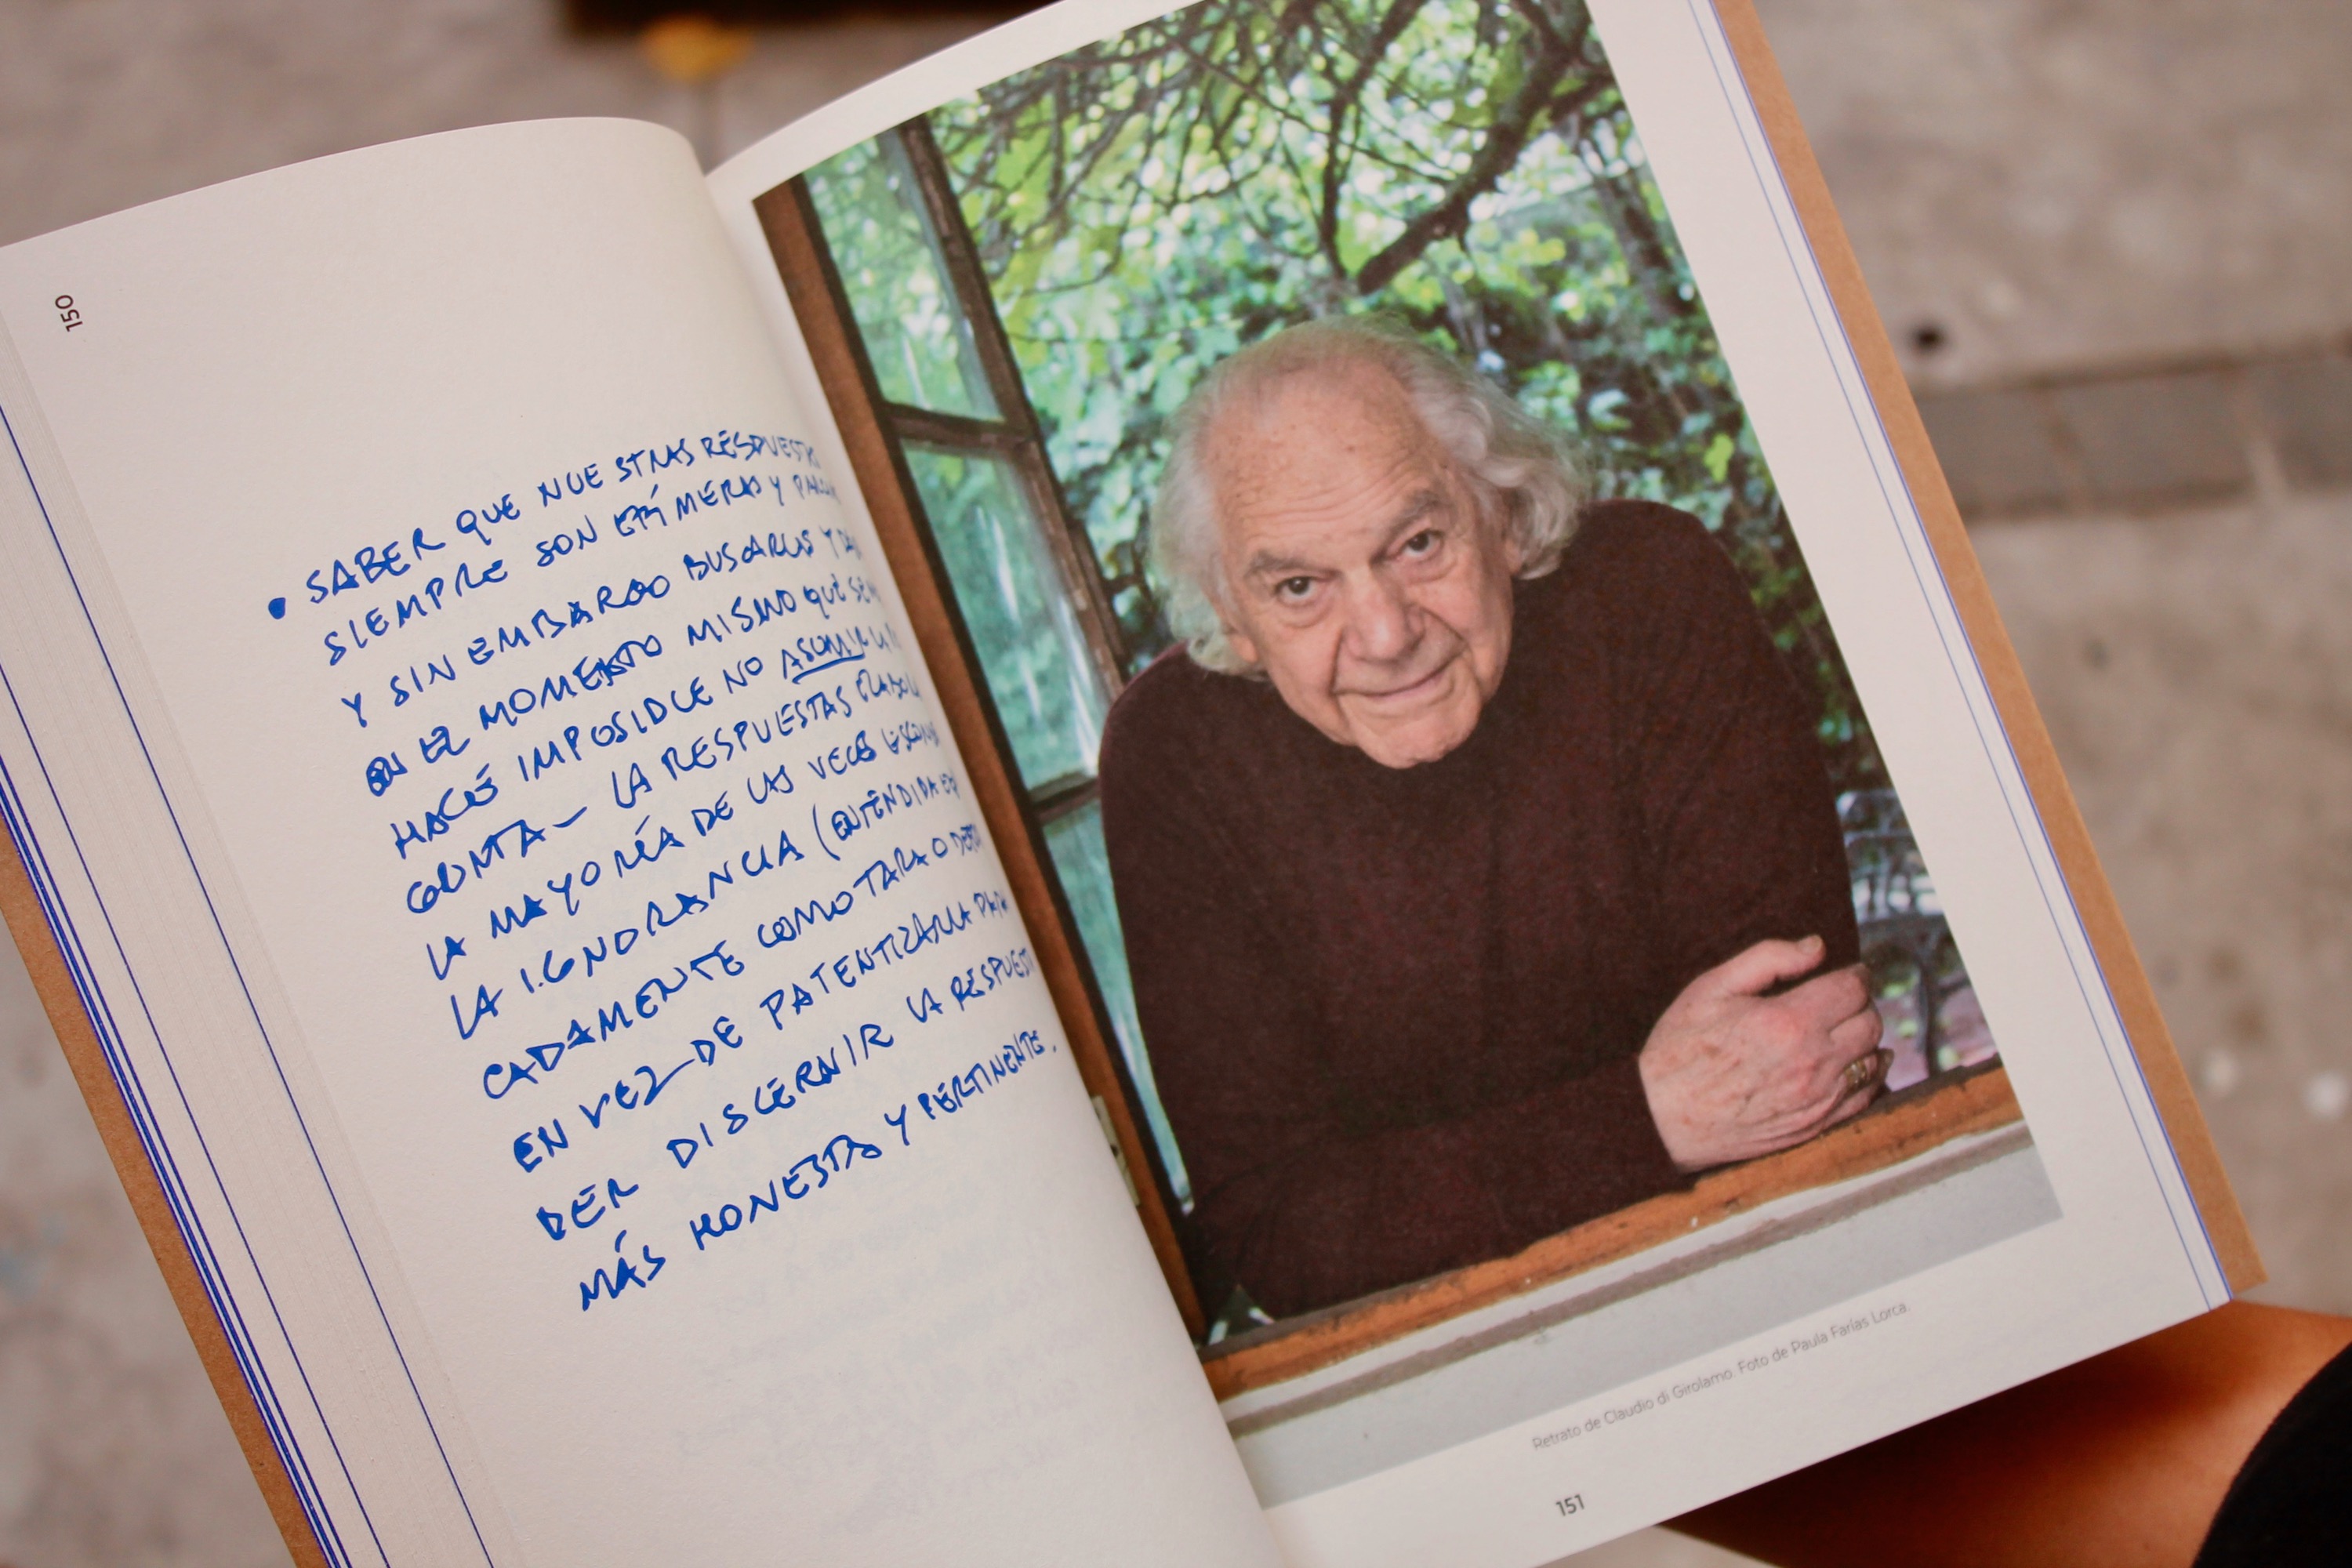 150
• SABER QUE NUESTRAS RESPUESTAS
SIEMPRE SON EFÍMERAS Y
Y SIN EMBARGO BUSCARLAS Y
EN EL MOMENTO MISMO QUE SE
HACE IMPOSIBLE NO ASUMIR
LA RESPUESTAS
LA MAYORÍA DE LAS VECES
LA IGNORANCIA (ENTENDIDA
CADAMENTE COMO TARA O
EN VEZ DE PATENTIZARLA
DER DISCERNIR LA RESPUESTA
MÁS HONESTA Y PERTINENTE.
Retrato de Claudio di Girolamo. Foto de Paula Farías Lorca.
151